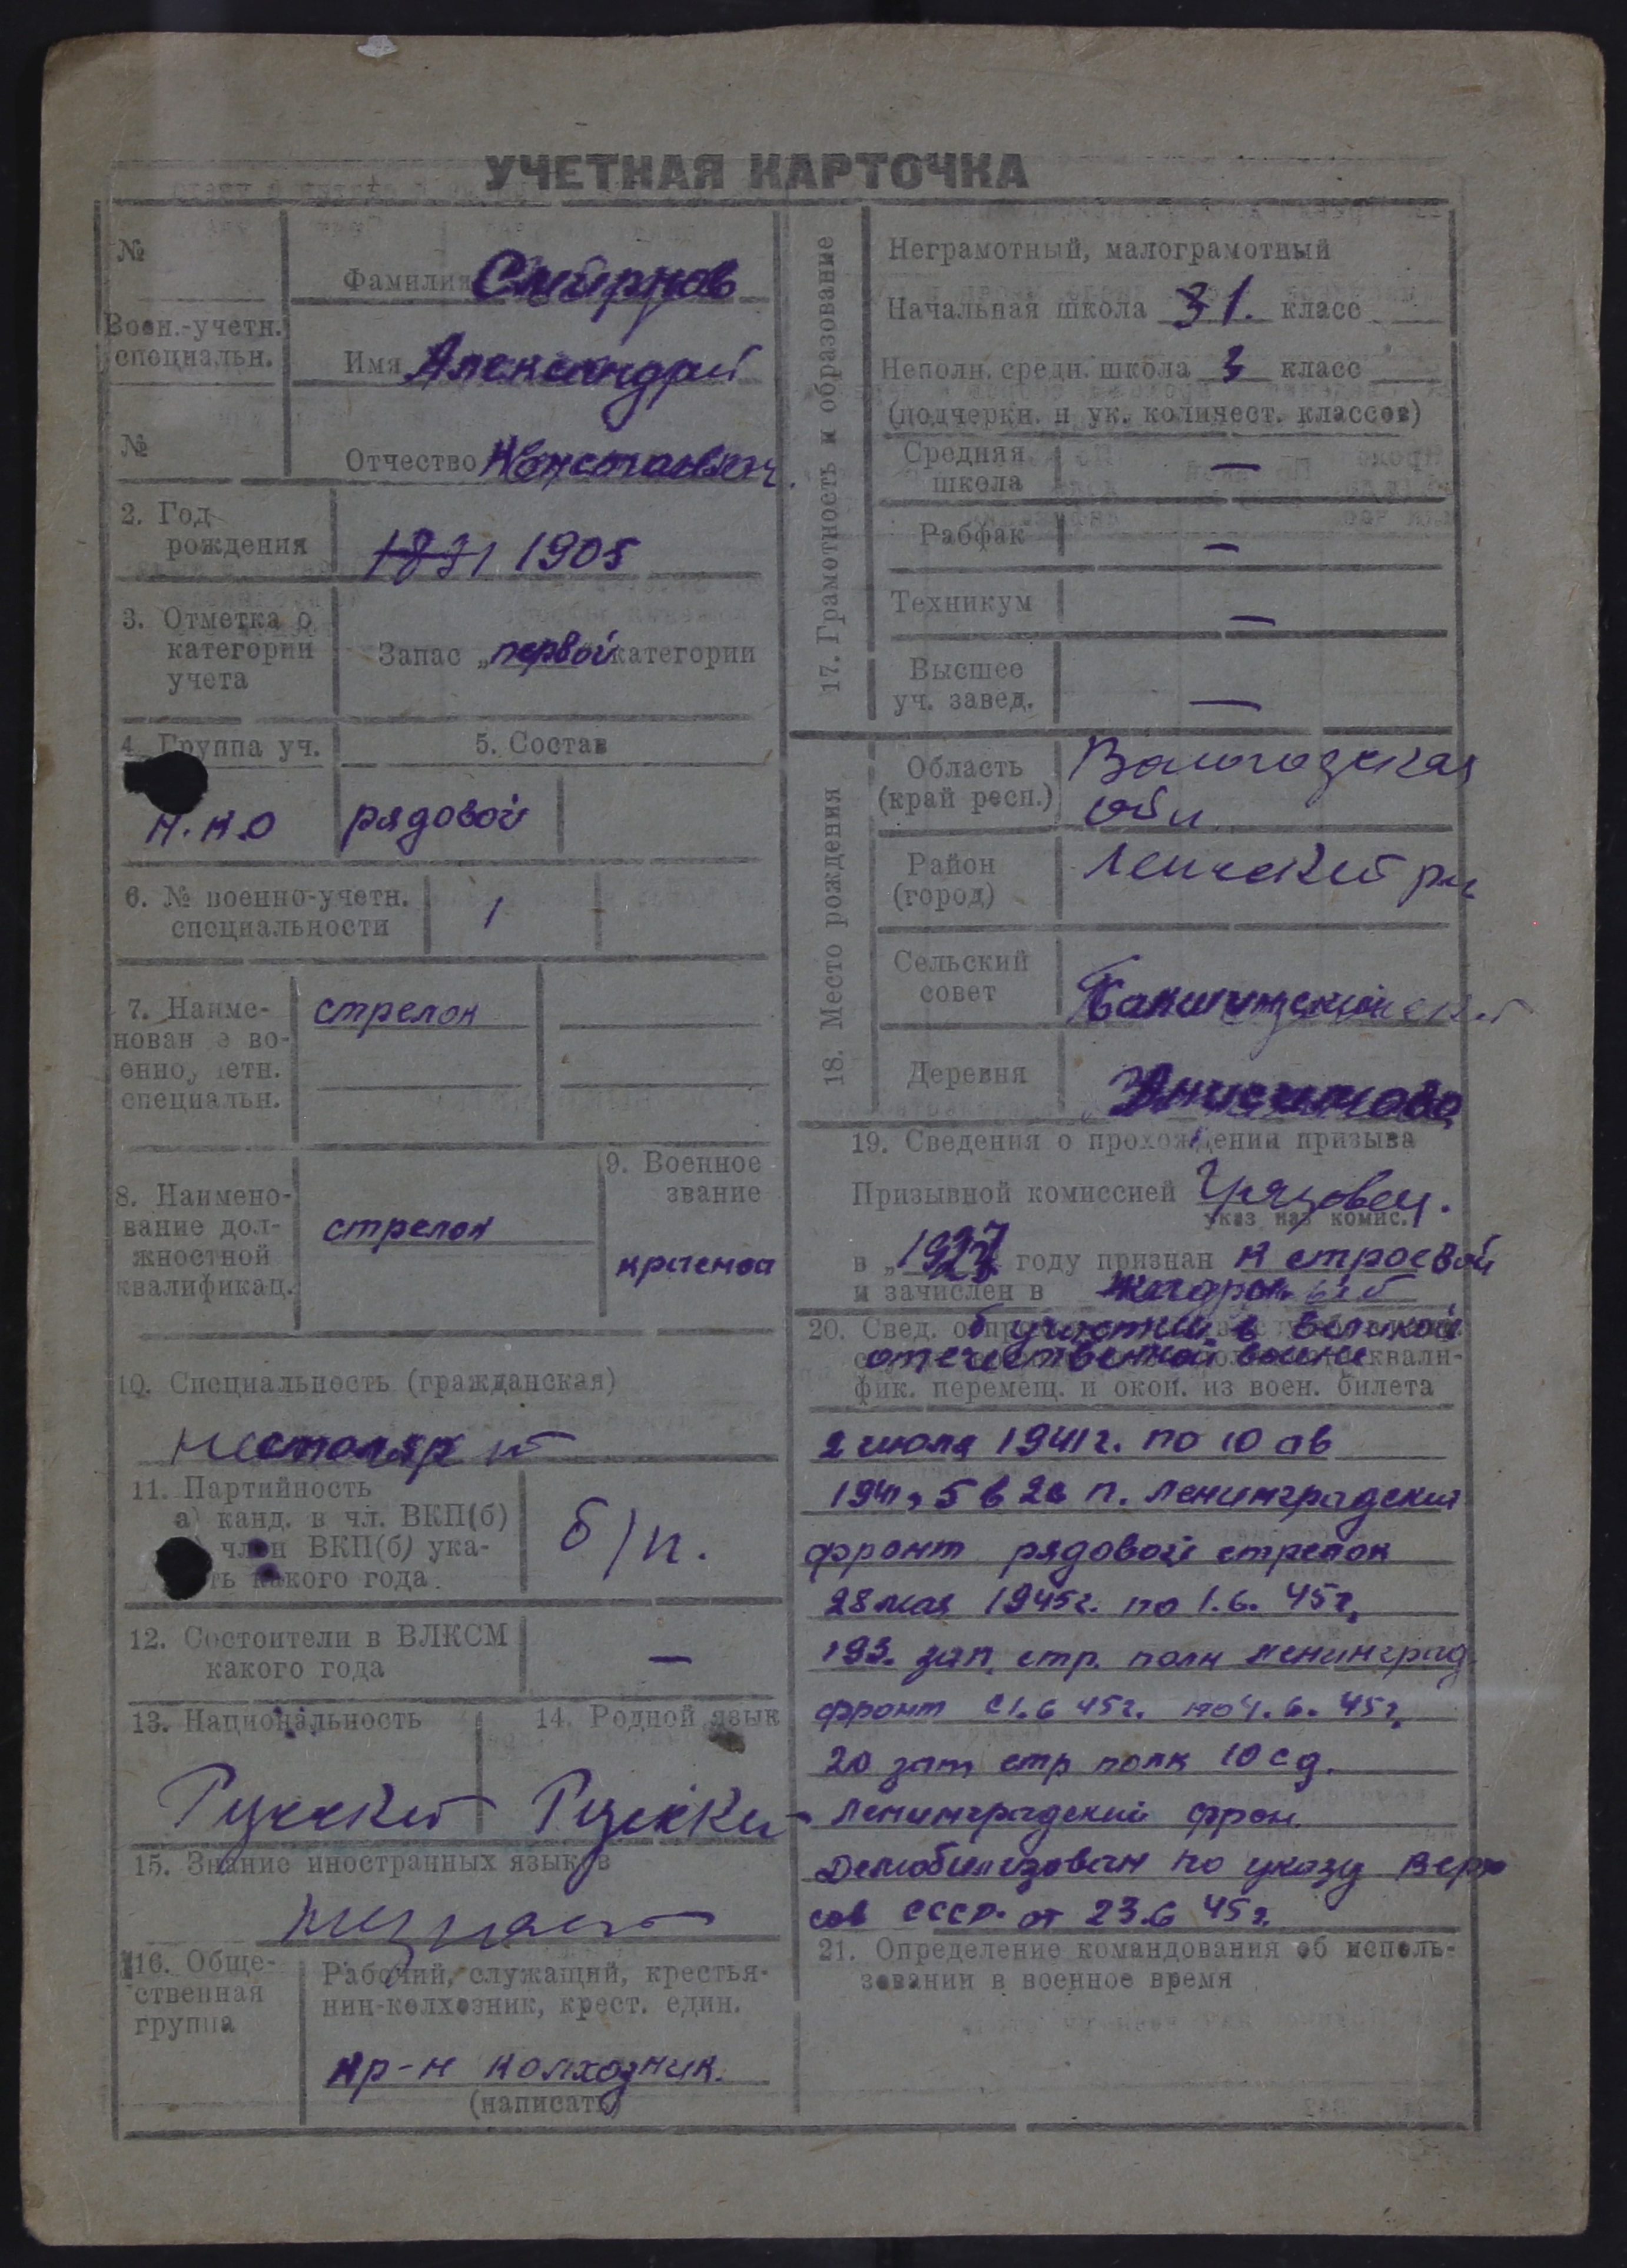 УЧЕТНАЯ КАРТОЧКА
№
Фамилия Смирнов
Воен.-учетн.
специальн.
Имя
№
Отчество
2. Год
рождения
1905
3. Отметка о
категории
учета
Запас „первой категории
4. Группа уч.
5. Состав
рядовой
6. № военно-учетн.
специальности
1
7. Наиме-
нован е во-
енно, етн.
специальн.
стрелок
8. Наимено-
вание дол-
жностной
квалификац.
стрелок
9. Военное
звание
10. Специальность (гражданская)
столяр
11. Партийность
а) канд. в чл. ВКП(б)
член ВКП(б) ука-
ть какого года.
б/п.
12. Состоители в ВЛКСМ
какого года
—
13. Национальность
14. Родной язык
15. Знание иностранных языков
16. Обще-
ственная
группа
Рабочий, служащий, крестья-
нин-колхозник, крест. един.
кр-н колхозник.
(написать)
17. Грамотность и образование
Неграмотный, малограмотный
Начальная школа класс
Неполн. средн. школа 3 класс
(подчеркн. и ук. количест. классов)
Средняя
школа
—
Рабфак
—
Техникум
—
Высшее
уч. завед.
—
18. Место рождения
Область
(край респ.)
Вологодская
обл
Район
(город)
Сельский
совет
Деревня
Анисимово
19. Сведения о прохождении призыва
Призывной комиссией Грязовец.
указ наз комис.
в „ году признан к строевой
и зачислен в
20. Свед. о
б участии в Великой
отечественной войне
квали-
фик. перемещ. и окон. из воен. билета
2 июля 1941г. по 10 ав
1941, п. Ленинградский
фронт рядовой стрелок
28 мая 1945г. по 1.6. 45г,
193. зап. стр. полк Ленинград
фронт с 1.6 45г. по 4.6. 45г,
20 зап стр полк 10 сд.
Ленинградский фрон.
Демобилизован по указу Верх
сов СССР. от 23.6 45г.
21. Определение командования об исполь-
зовании в военное время